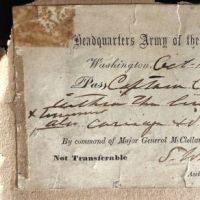 Headquarters Army of the
Washington, Oct.
Pass Captain
within the
&
also carriage &
By command of Major General McClellan
Not Transferable S. W